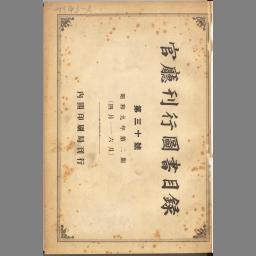 官廳刊行圖書目録
第三十號
昭和九年第二期
(四月―六月)
內閣印刷局刊行